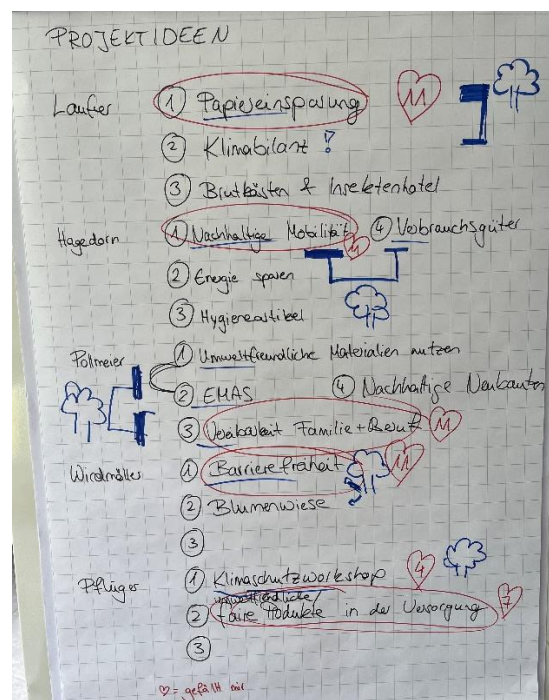 PROJEKTIDEEN
Laufer ① Papiereinsparung 11
② Klimabilanz !
③ Brutkästen & Insektenhotel
Hagedorn ① Nachhaltige Mobilität 11 ④ Verbrauchsgüter
② Energie sparen
③ Hygieneartikel
Pollmeier ① Umweltfreundliche Materialien nutzen
② EMAS ④ Nachhaltige Neubauten
③ Vereinbarkeit Familie + Beruf 11
Windmöller ① Barrierefreiheit 11
② Blumenwiese
③
Pflüger ① Klimaschutzworkshop 4
umweltfreundliche/
② faire Produkte in der Versorgung 7
③
♡ = gefällt mir